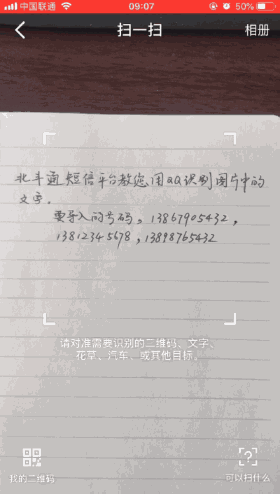 中国联通 09:07 50%
扫一扫 相册
北斗通短信平台教您用QQ识别图片中的
文字。
要导入的号码。13867905432,
13812345678,13898765432
请对准需要识别的二维码、文字、
花草、汽车、或其他目标。
我的二维码 可以扫什么